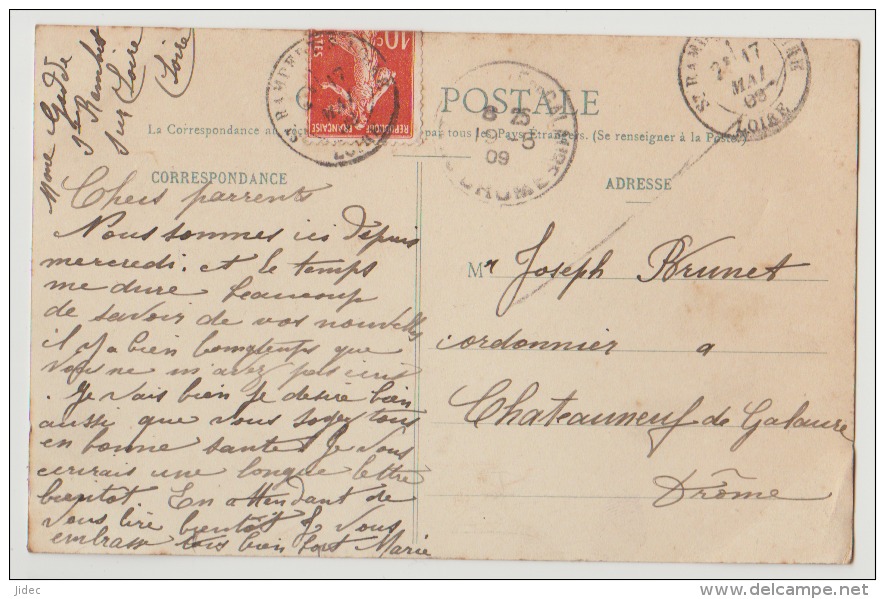 Mme Gardde
St Rambert
sur Loire
(Loire)
10c
POSTES
REPUBLIQUE FRANÇAISE
17
MAI
LOIRE
POSTALE
8 25
19-5
09
DROME
17
MAI
09
LOIRE
La Correspondance au par tous les Pays Etrangers. (Se renseigner à la Poste)
CORRESPONDANCE
Chers parrents
Nous sommes ici dépuis
mercredi. et le temps
me dure beaucoup
de savoir de vos nouvelles
il y a bien longtemps que
vous ne m'avez pas écrit
. Je vais bien je desire bien
aussi que vous soyez tous
en bonne santer Je vous
ecrirais une longue lettre
bientot. En attendant de
vous lire bientôt Je vous
embrasse tous bien fort Marie
ADRESSE
Mr Joseph Brunet
cordonnier a
Chateauneuf de Galaure
Drôme
jidec
www.delcampe.net